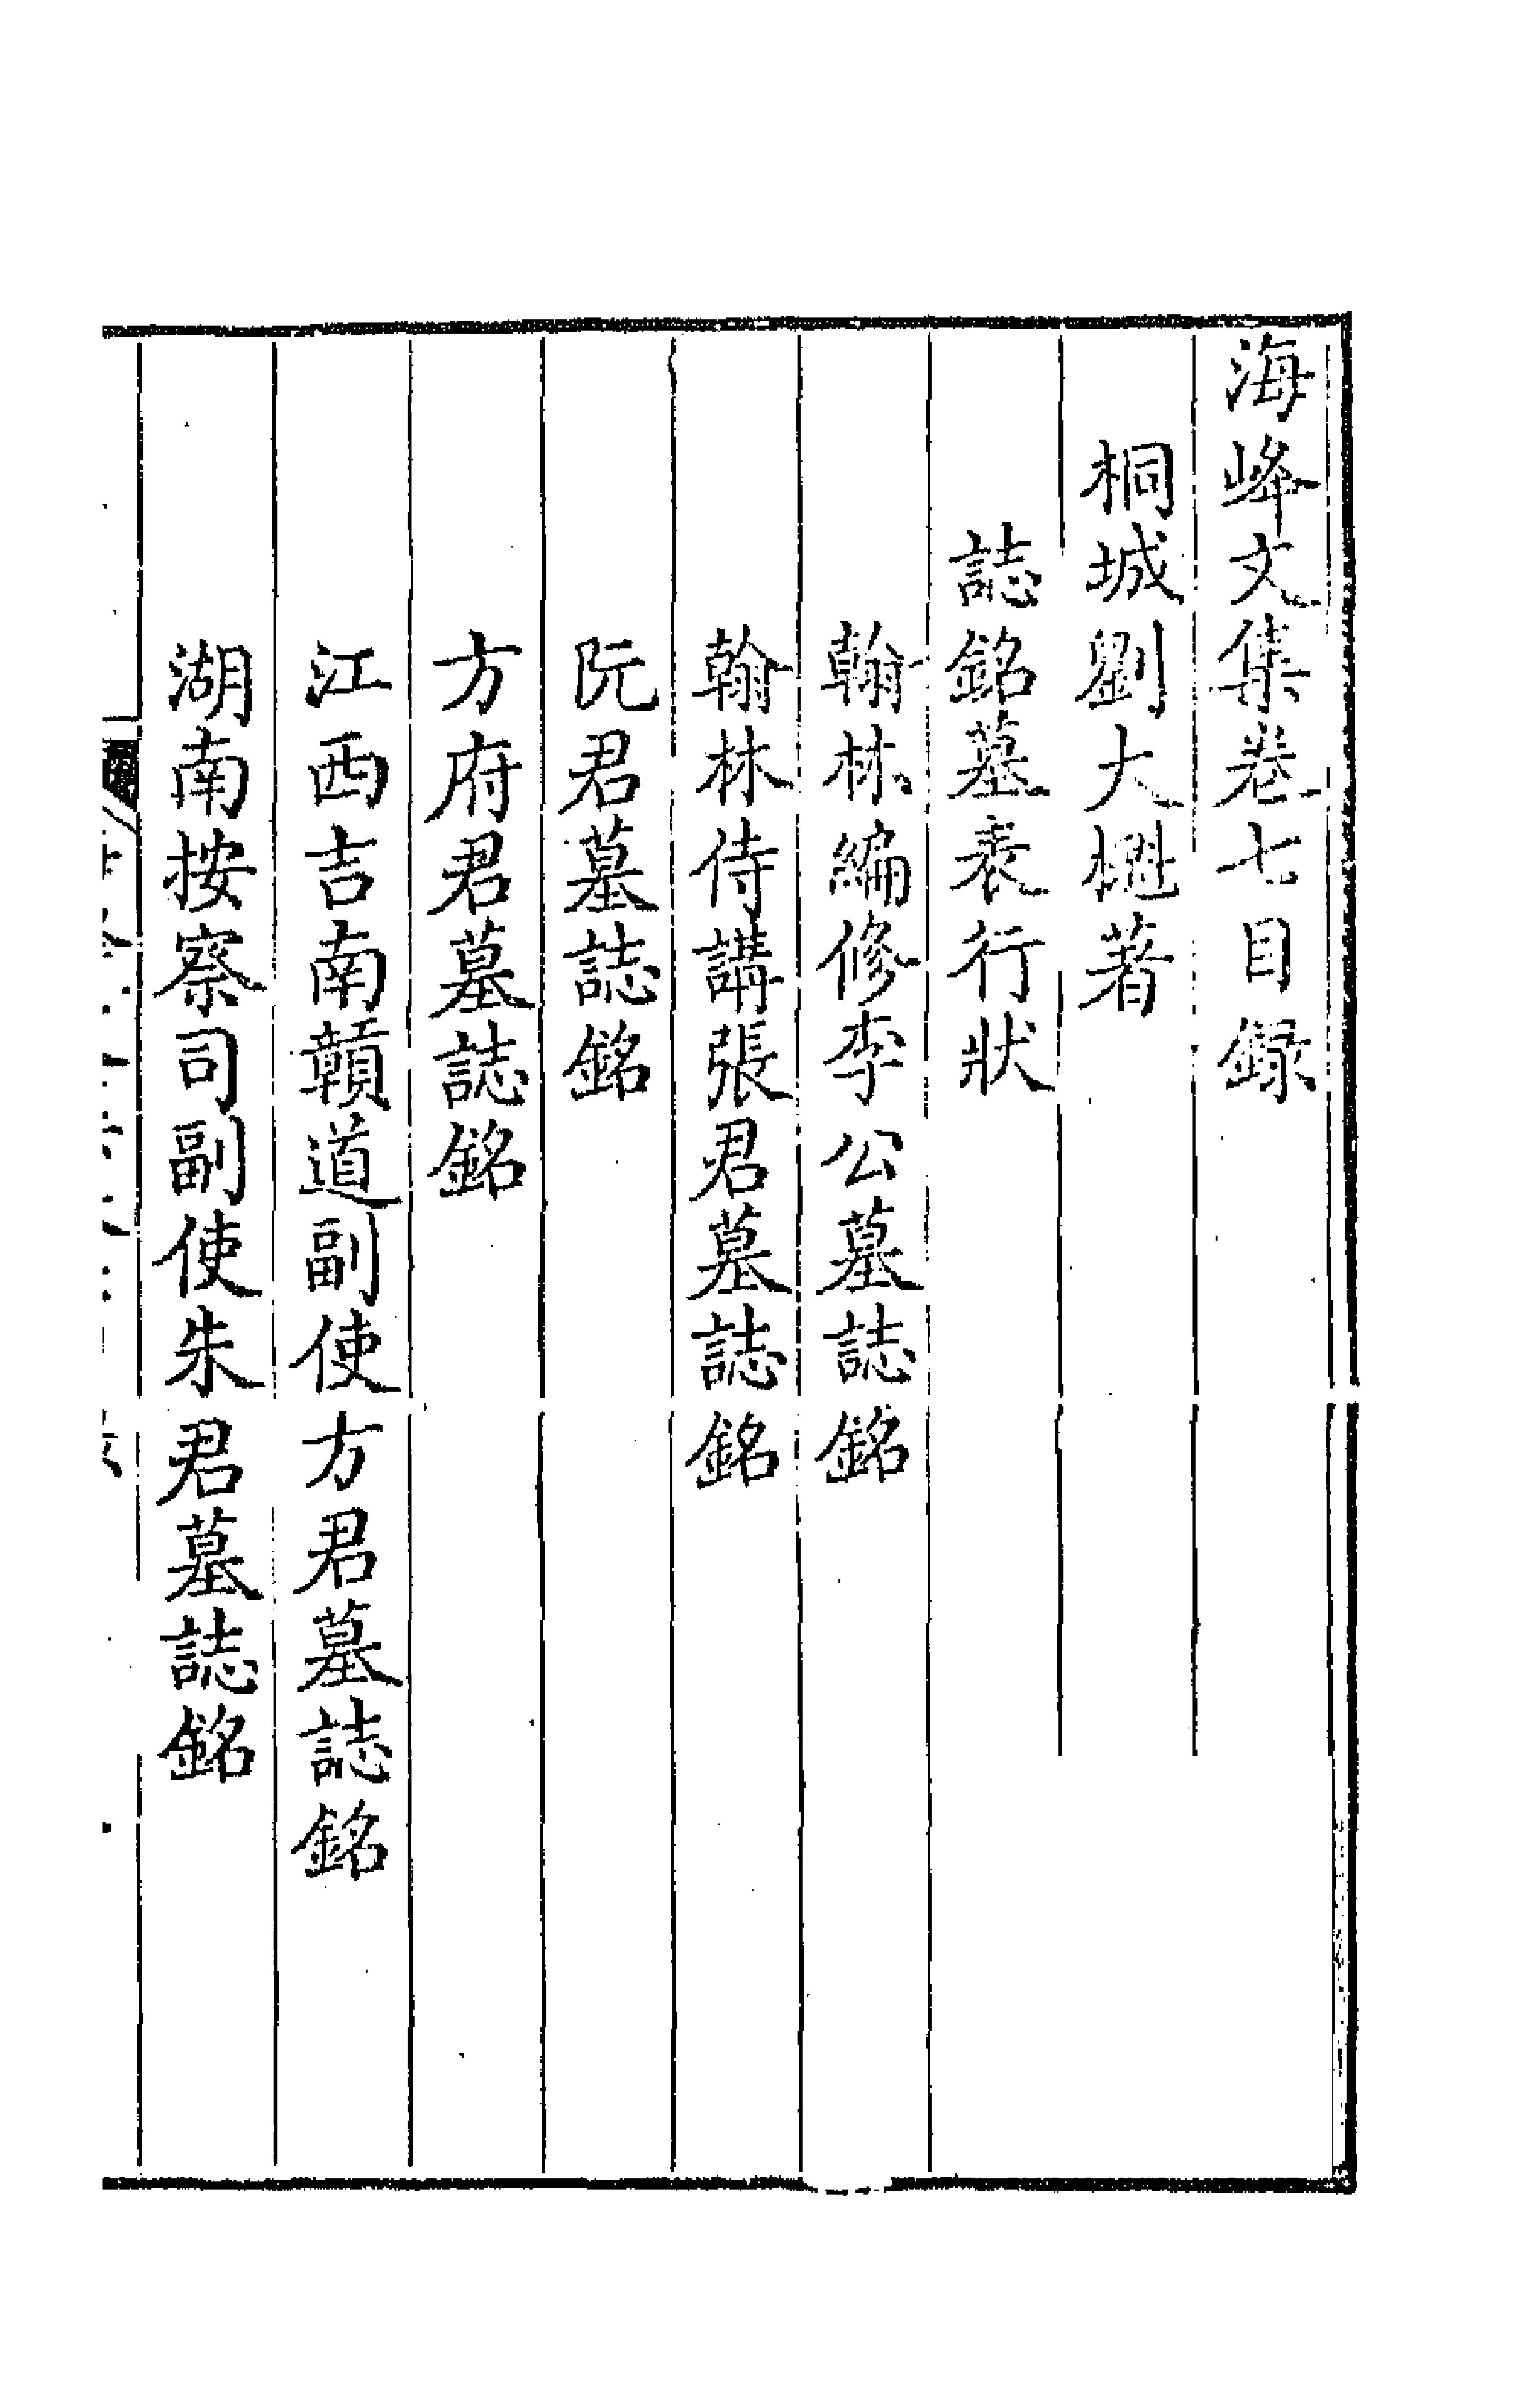 海峰文集卷七目録
桐城劉大櫆著
誌銘墓表行狀
翰林編修李公墓誌銘
翰林侍講張君墓誌銘
阮君墓誌銘
方府君墓誌銘
江西吉南贛道副使方君墓誌銘
湖南按察司副使朱君墓誌銘